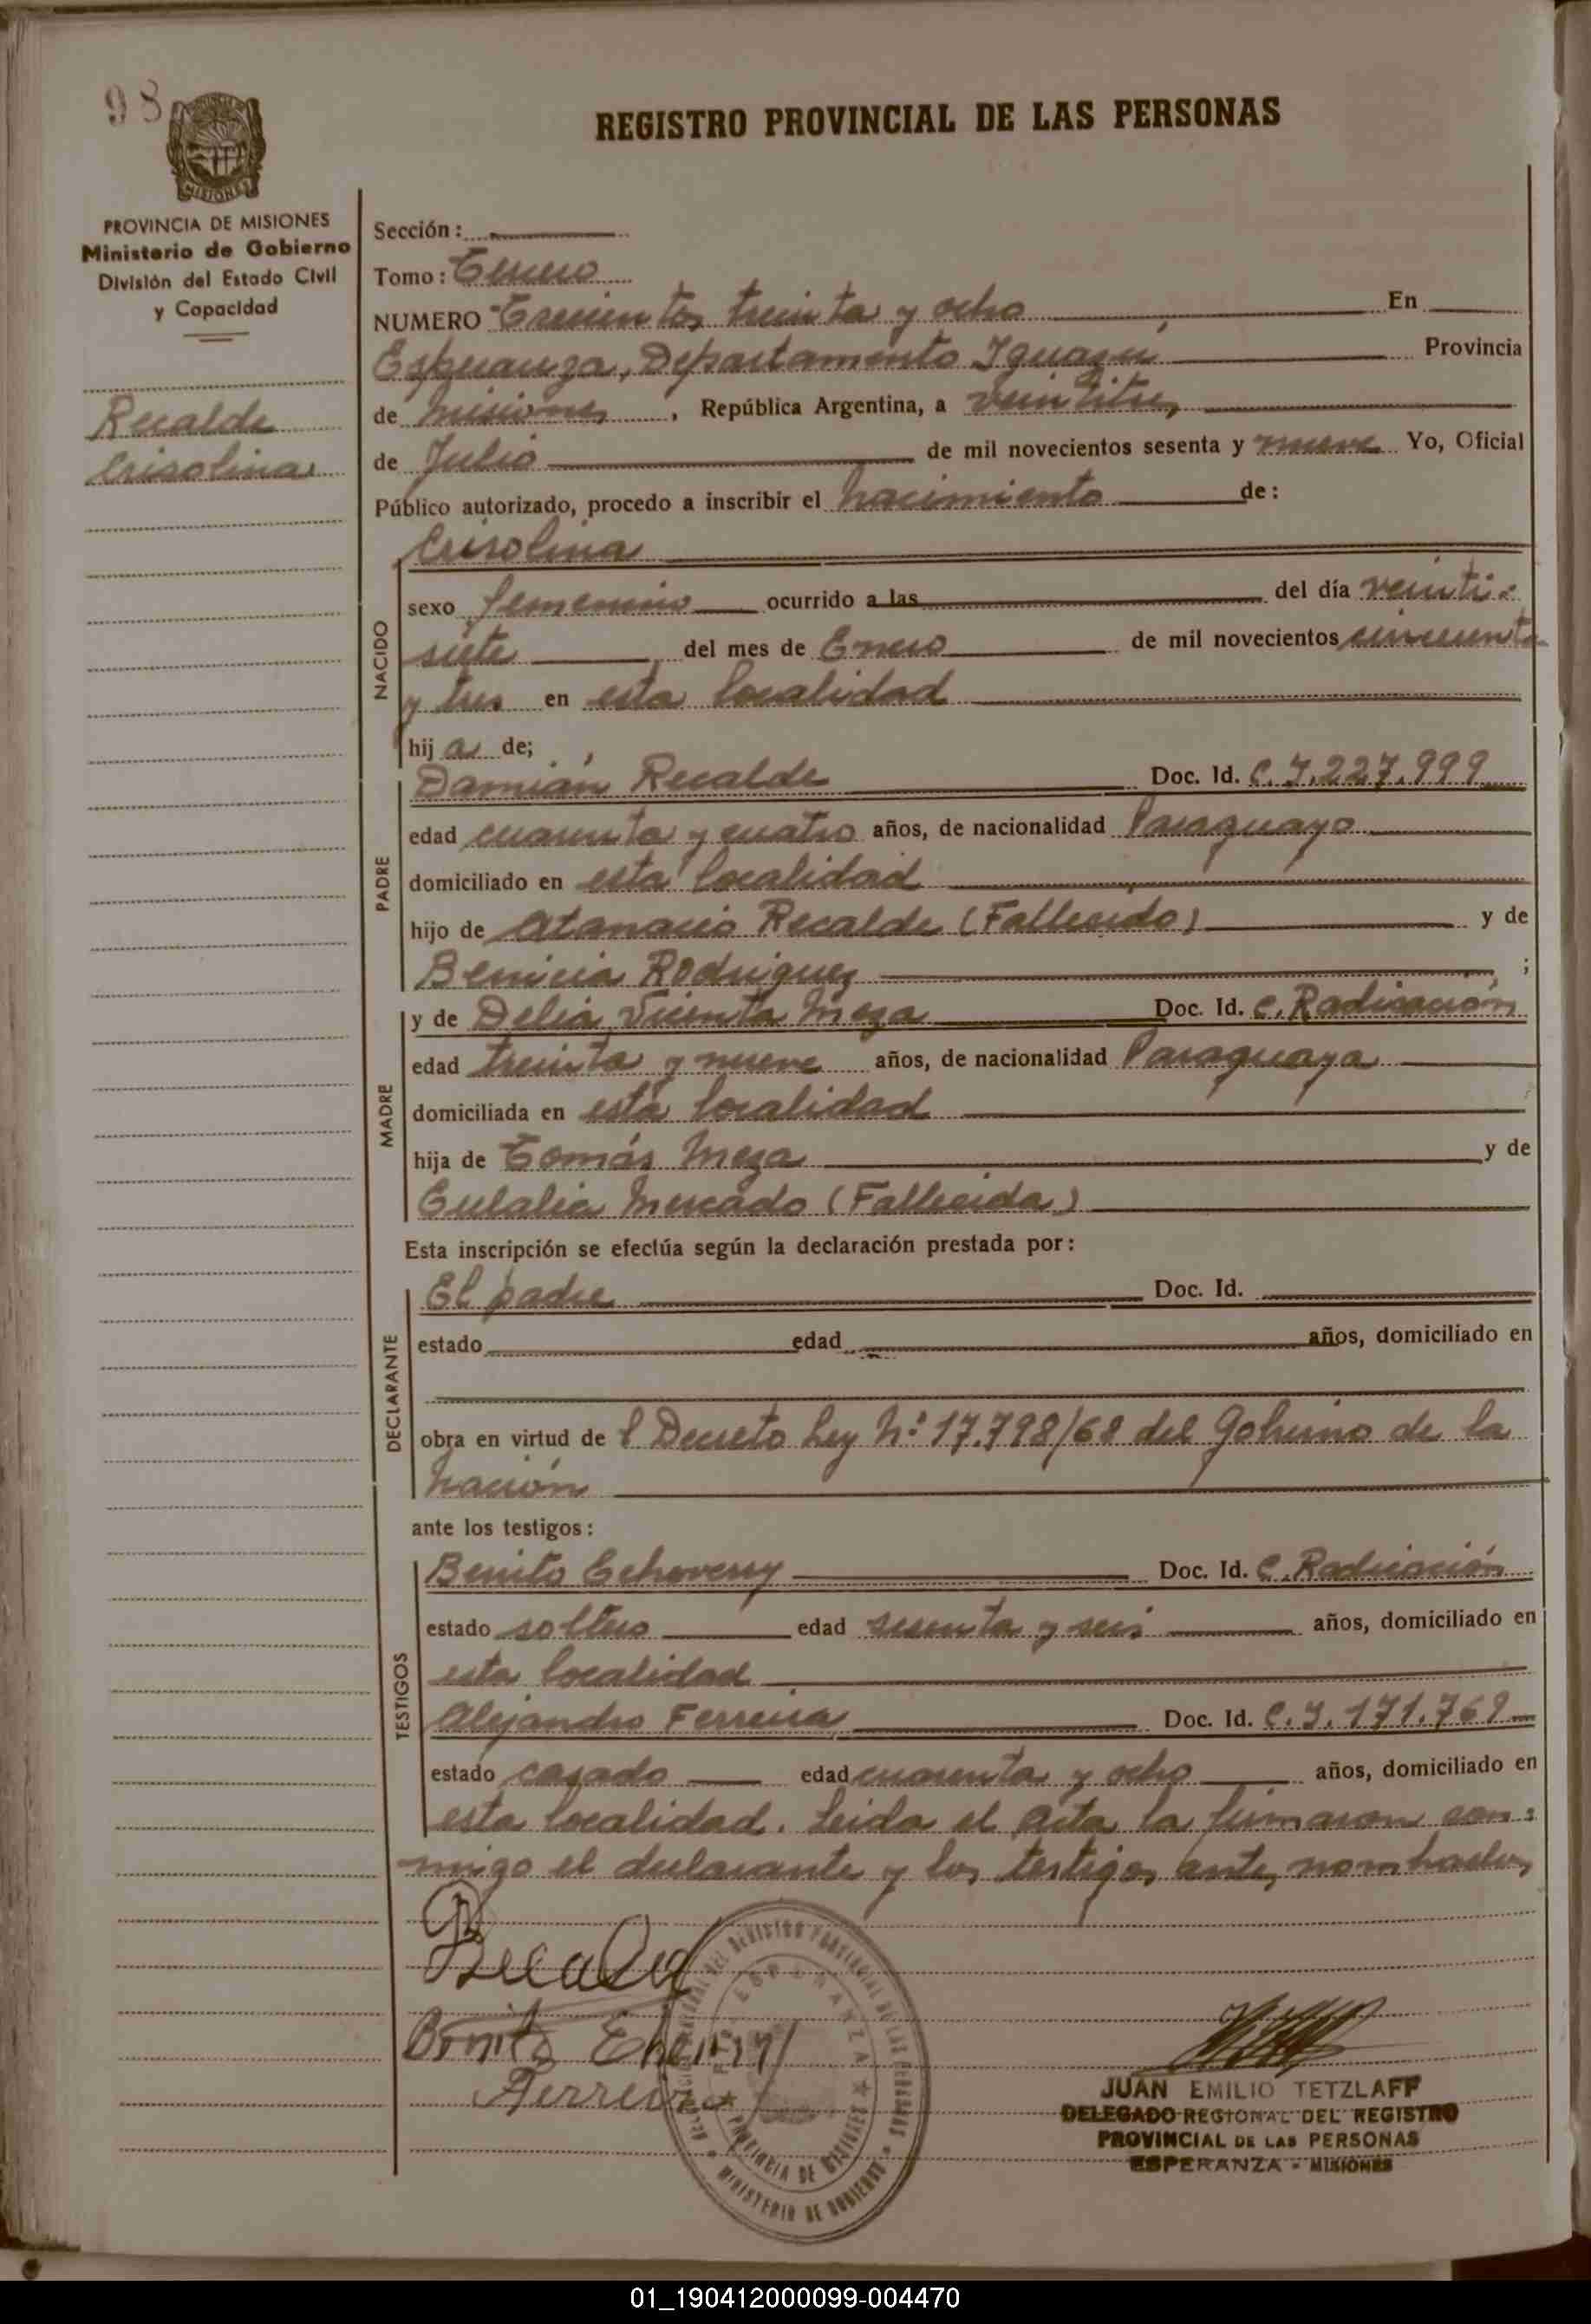 98
REGISTRO PROVINCIAL DE LAS PERSONAS
MISIONES
PROVINCIA DE MISIONES
Ministerio de Gobierno
División del Estado Civil
y Capacidad
Recalde
Crisolina
Sección:
Tomo: Tercero
NUMERO Trecientos treinta y ocho En
Esperanza, Departamento Iguazú Provincia
de Misiones, República Argentina, a veintitres
de Julio de mil novecientos sesenta y nueve Yo, Oficial
Público autorizado, procedo a inscribir el nacimiento de:
NACIDO
Crisolina
sexo femenino ocurrido a las del día veinti-
siete del mes de Enero de mil novecientos cincuenta
y tres en esta localidad
hija de;
PADRE
Damián Recalde Doc. Id. C.I. 227.999
edad cuarenta y cuatro años, de nacionalidad Paraguayo
domiciliado en esta localidad
hijo de Atanacio Recalde (Fallecido) y de
Benicia Rodriguez ;
MADRE
y de Delia Vicenta Meza Doc. Id. C. Radicación
edad treinta y nueve años, de nacionalidad Paraguaya
domiciliada en esta localidad
hija de Tomás Meza y de
Eulalia Mercado (Fallecida)
Esta inscripción se efectúa según la declaración prestada por:
DECLARANTE
El padre Doc. Id.
estado edad años, domiciliado en
obra en virtud de l Decreto Ley N° 17.798/68 del Gobierno de la
Nación
ante los testigos:
TESTIGOS
Benito Echoverry Doc. Id. C. Radicación
estado soltero edad sesenta y seis años, domiciliado en
esta localidad
Alejandro Ferreira Doc. Id. C.I. 171.769
estado casado edad cuarenta y ocho años, domiciliado en
esta localidad. Leida el acta la firmaron con-
migo el declarante y los testigos antes nombrados
Recalde
Benito
Ferreira
ESPERANZA
PROVINCIA DE MISIONES
MINISTERIO DE GOBIERNO
JUAN EMILIO TETZLAFF
DELEGADO REGIONAL DEL REGISTRO
PROVINCIAL DE LAS PERSONAS
ESPERANZA - MISIONES
01_190412000099-004470